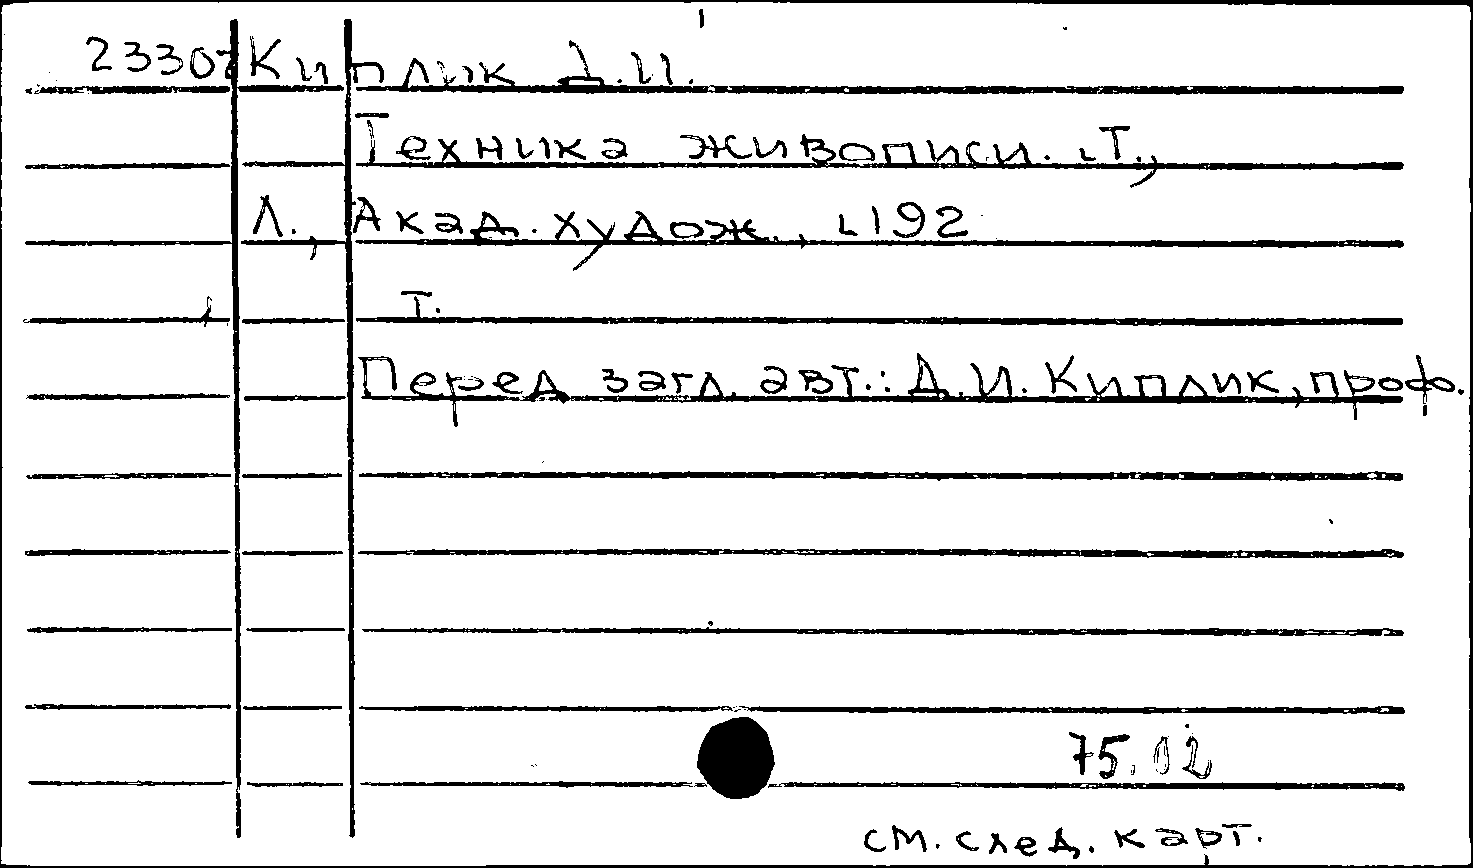 23307 Киплик Д.И.
Техника живописи. ⌞Т.,
Л., Акад. худож., ⌞192
т.
Перед загл. авт.: Д.И. Киплик, проф.
75.02
см. след. карт.